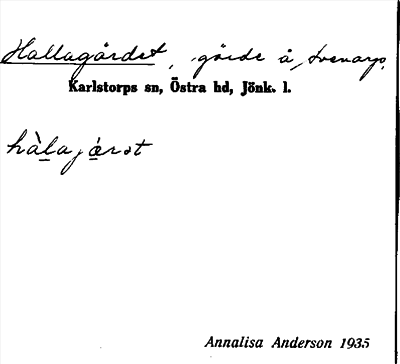 Hallagärdet, gärde å Svenarp,
Karlstorps sn, Östra hd, Jönk. l.
hàlajæ̀rət
Annalisa Anderson 1935